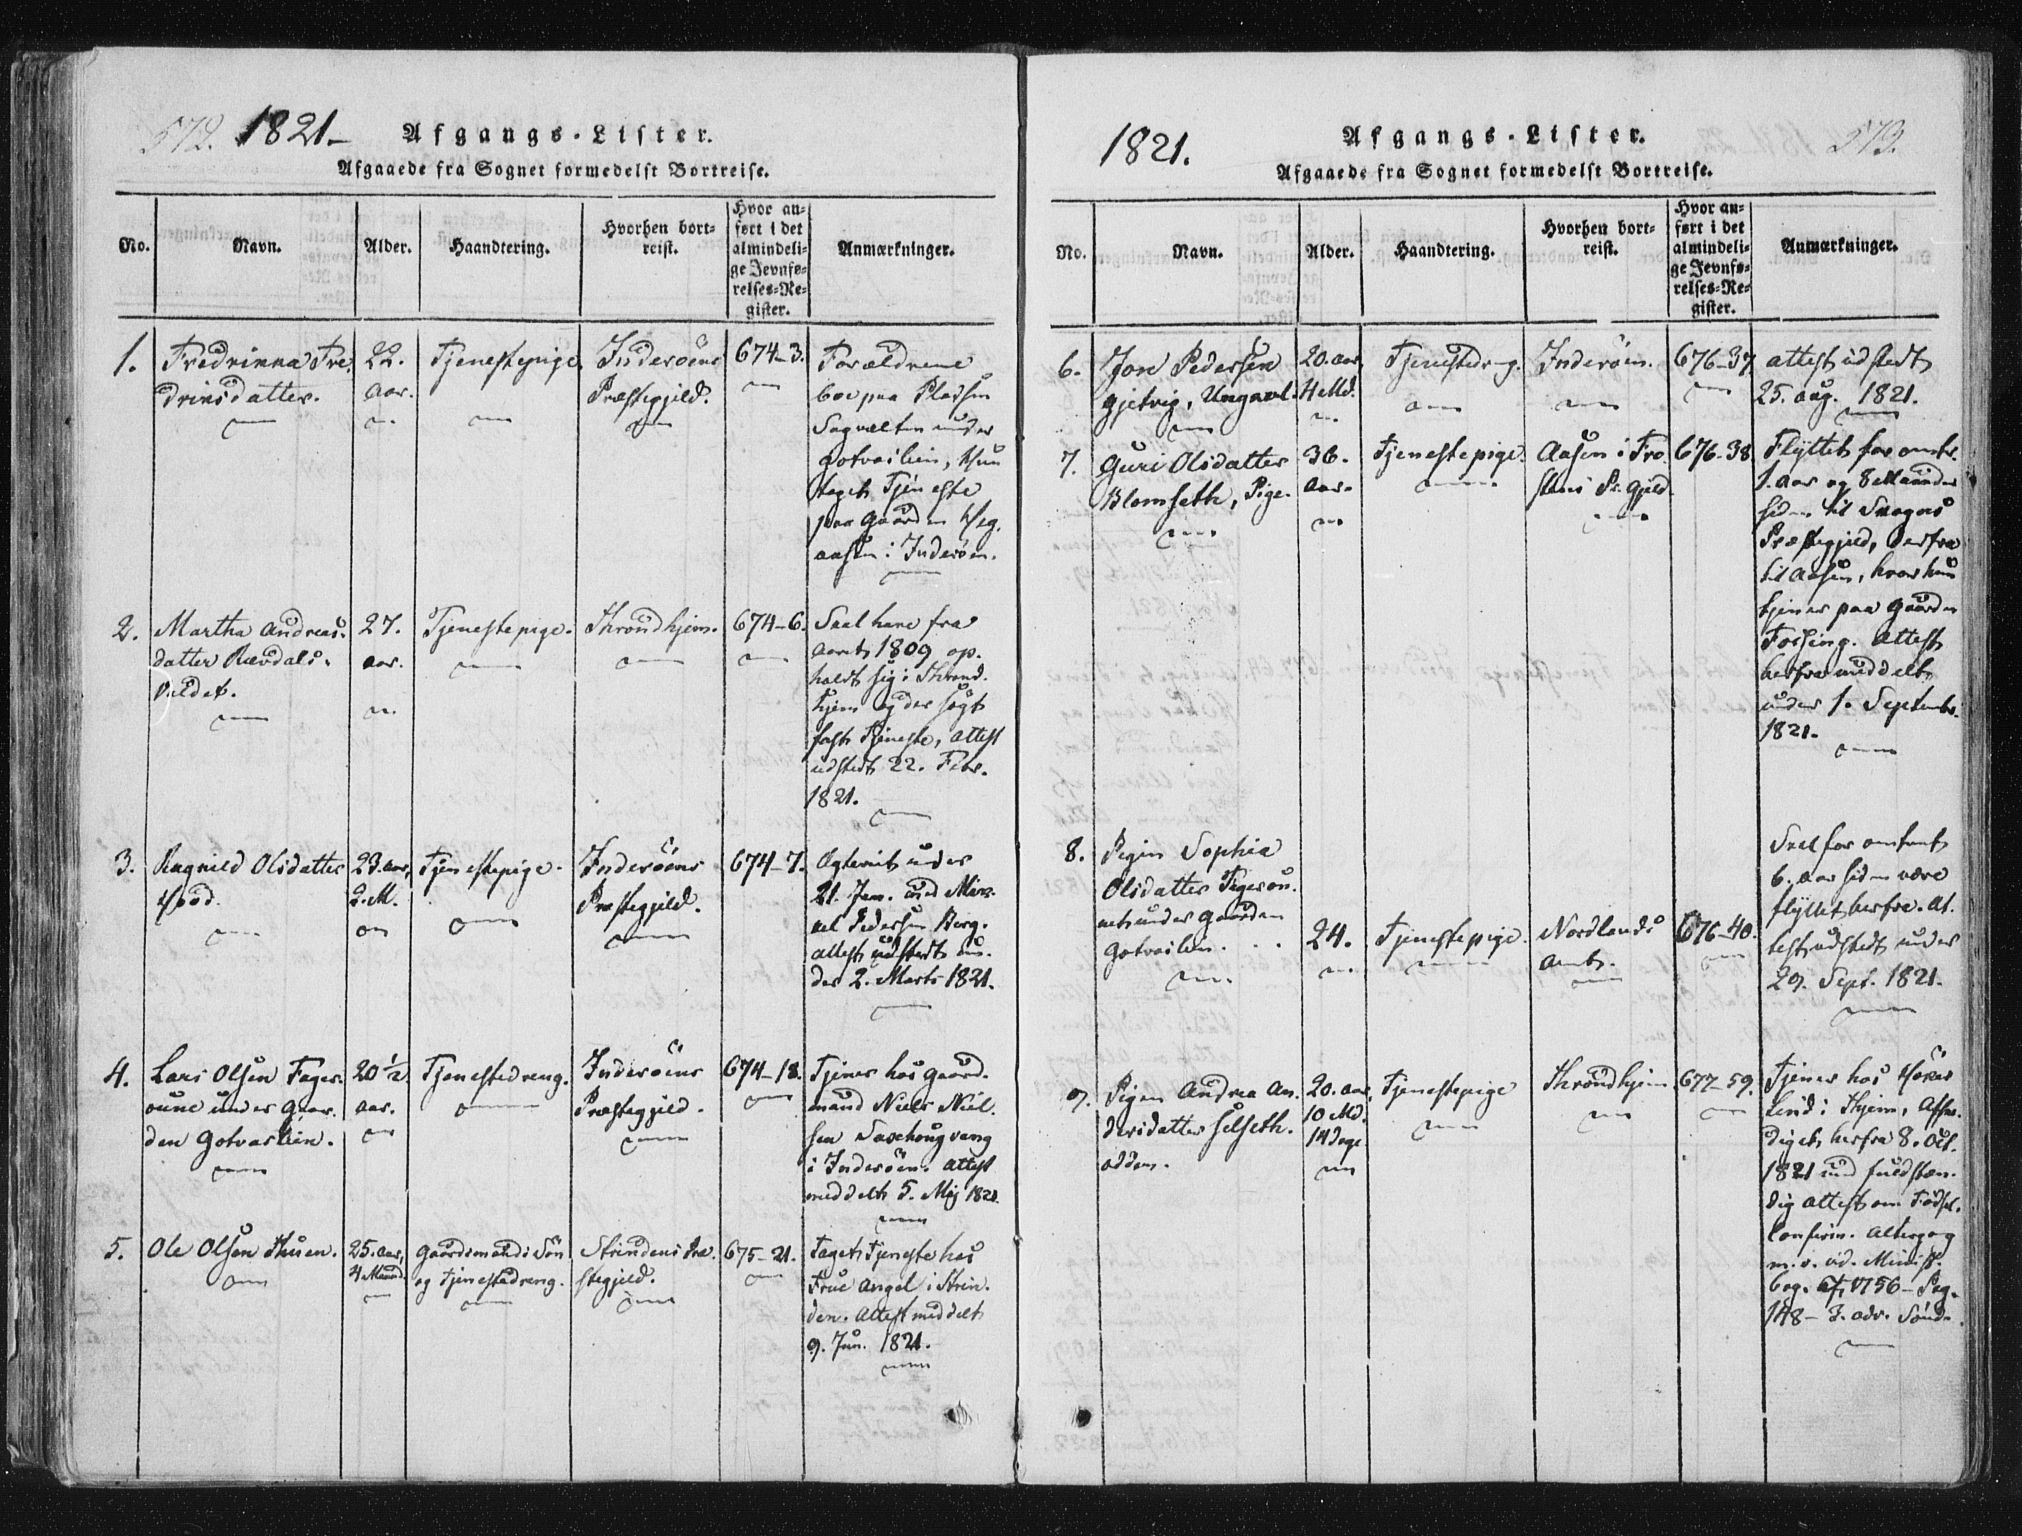 572. 1821-
Afgangs-Lister.
Afgaaede fra Sognet formedelst Bortreise.
No.
Navn.
Alder.
Haandtering.
Hvorhen bort-
reist.
Hvor an-
ført i det
almindeli-
ge Jevnfø-
relses-Re-
gister.
Anmærkninger.
1.
Fredrinna Fre
drinsdatter.
22.
aar.
Tjenestepige
Inderöens
Præstegjeld.
674-3.
Forældrene
boe paa Pladsen
under
hun
taget Tjeneste
paa Gaarden
aasen i Inderöen.
2.
Martha Andreas-
datter
27.
aar.
Tjenestepige.
Throndhjem.
674-6.
Skal have fra
aaret 1809 op-
holdt sig i Thrond-
hjem og der søgt
fast Tjeneste, attest
udstedt 22. Febr.
1821.
3.
Ragnild Olsdatter
23. aar,
2. M.
Tjenestepige.
Inderöens
Præstegjeld.
674-7.
Ægteviet under
21. Jan. med
Pedersen Berg.
attest udstedt un-
der 2. Marts 1821.
4.
Lars Olsen Fager-
oune under Gaar-
den Gotvaslien.
20 1/2
aar.
Tjenestedreng.
Inderöens
Præstegjeld.
674-18.
Tjener hos Gaard-
mand Niels Niel-
sen
i Inderöen. attest
meddelt 5. Maj 1821.
5.
Ole Olsen
25. aar,
4 Maaned.
Gaardmands Søn
og Tjenestedreng.
Strindens Præ-
stegjeld.
675-21.
Taget Tjeneste hos
Frue Angel i Strin-
den. Attest meddelt
9. Jun. 1821.
1821.
Afgangs-Lister.
573.
Afgaaede fra Sognet formedelst Bortreise.
No.
Navn.
Alder.
Haandtering.
Hvorhen bort-
reist.
Hvor an-
ført i det
almindeli-
ge Jevnfø-
relses-Re-
gister.
Anmærkninger.
6.
Jon Pedersen
Gjetvig, Ungkarl.
20. aar,
4 Md.
Tjenestedrg.
Inderöen.
676-37
attest udstedt
25. aug. 1821.
7.
Guri Olsdatter
Blomseth, Pige.
36.
aar.
Tjenestepige.
Aasen i Fro-
stens Pr. Gjeld.
676-38.
Flyttet for omtr.
1. aar og 8 Maaneder
siden til Skogns
Præstegjeld, derfra
til Aasen, hvor hun
tjener paa Gaarden
Fossing. Attest
herfra meddelt
under 1. Septembr.
1821.
8.
Pigen Sophia
Olsdatter
under Gaarden
Gotvaslien.
24.
Tjenestepige.
Nordlands
amt.
676-40.
Skal for omtrent
6. aar siden være
flyttet herfra. At-
test udstedt under
29. Sept. 1821.
9.
Pigen Andrea An-
dersdatter Selseth-
odden.
20. aar,
10 Md.
14 dage
Tjenestepige
Throndhjem
677-59.
Tjener hos
Lind i Thjem, affær-
diget herfra 8. Oct.
1821 med fuldstæn-
dig attest om Fødsel,
Confirm. Altergang
m. v. vid. Minist.
bog. Pag.
148- 3. adv. Sönd.